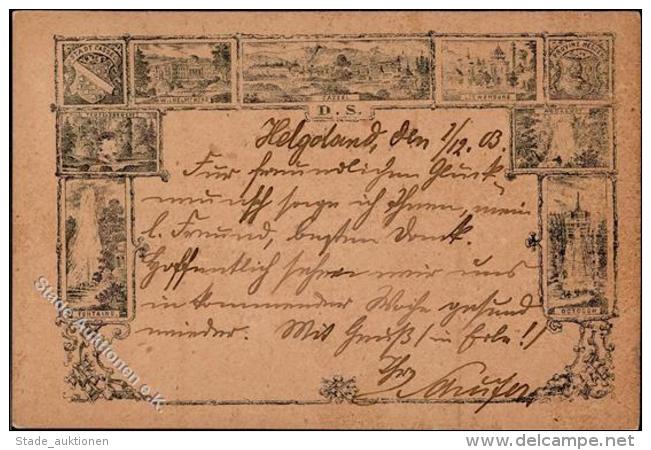 STADT CASSEL
WILHELMSHÖHE
CASSEL
LÖWENBURG
PROVINZ HESSEN
TEUFELSBRÜCKE
D. S.
FONTAINE
OCTOGON
Helgoland, den 1/12. 03.
Für freundlichen Glück-
wunsch sage ich Ihnen, mein
l. Freund, besten Dank.
Hoffentlich sehen wir uns
in kommender Woche gesund
wieder. Mit Gruß (in Eile!)
Ihr
Stade Auktionen e.K.
Stade_auktionen
delcampe.net